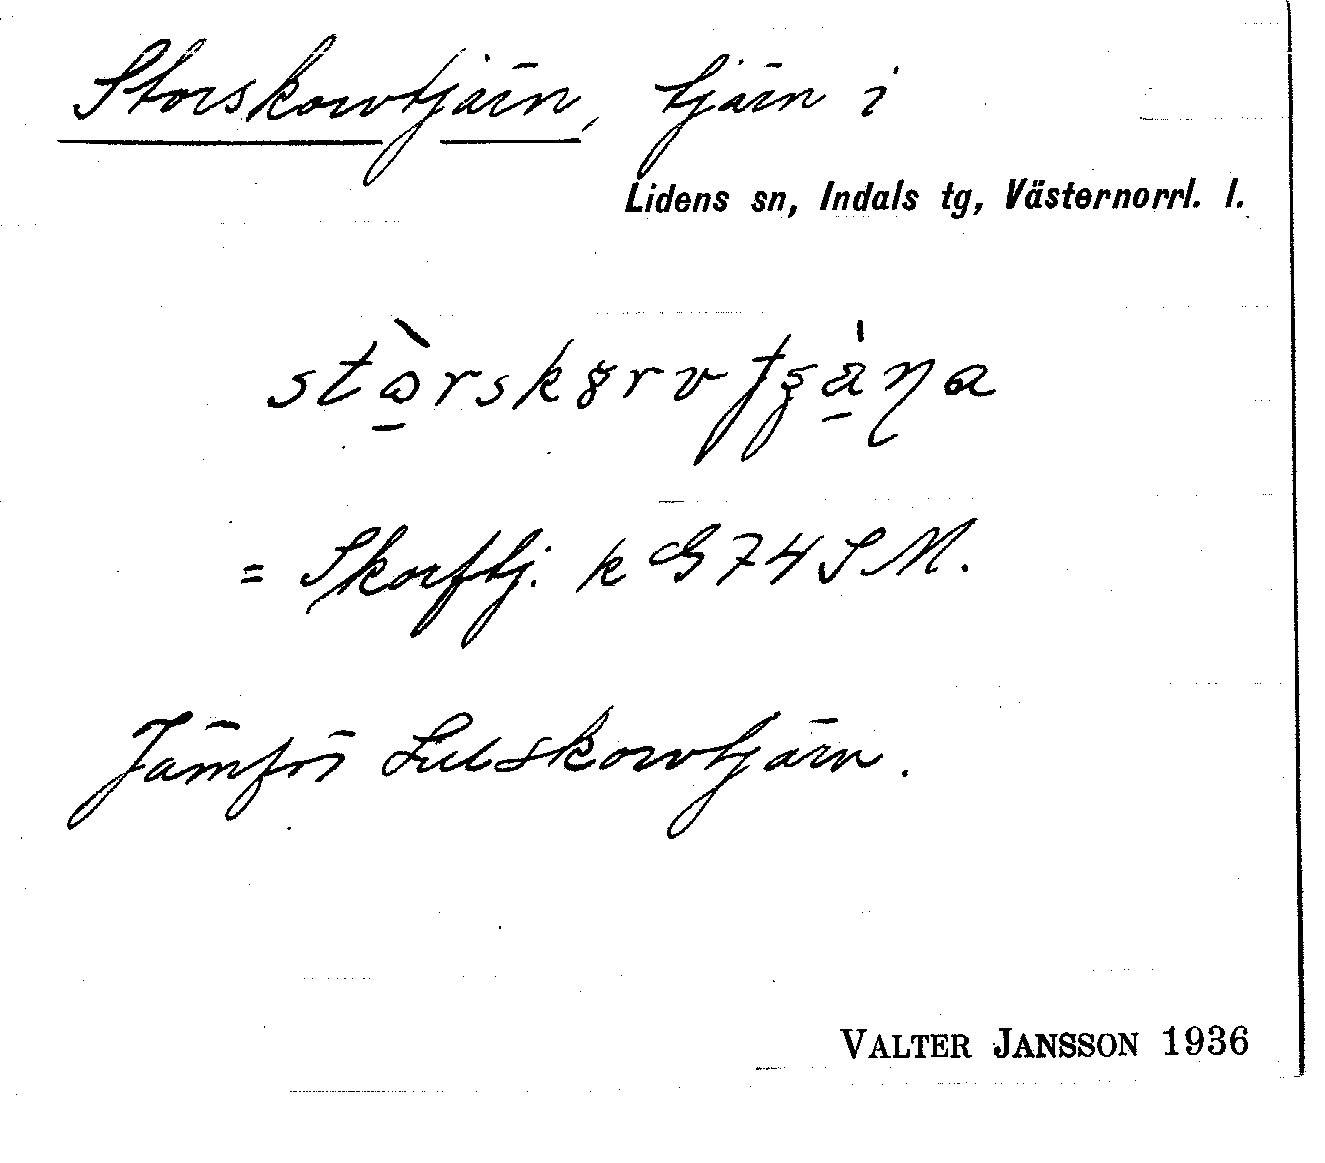 Storskorvtjärn, tjärn i
Lidens sn, Indals tg, Västernorrl. l.
= Skorftj. k G 74 SM.
Jämför Lillskorvtjärn.
VALTER JANSSON 1936